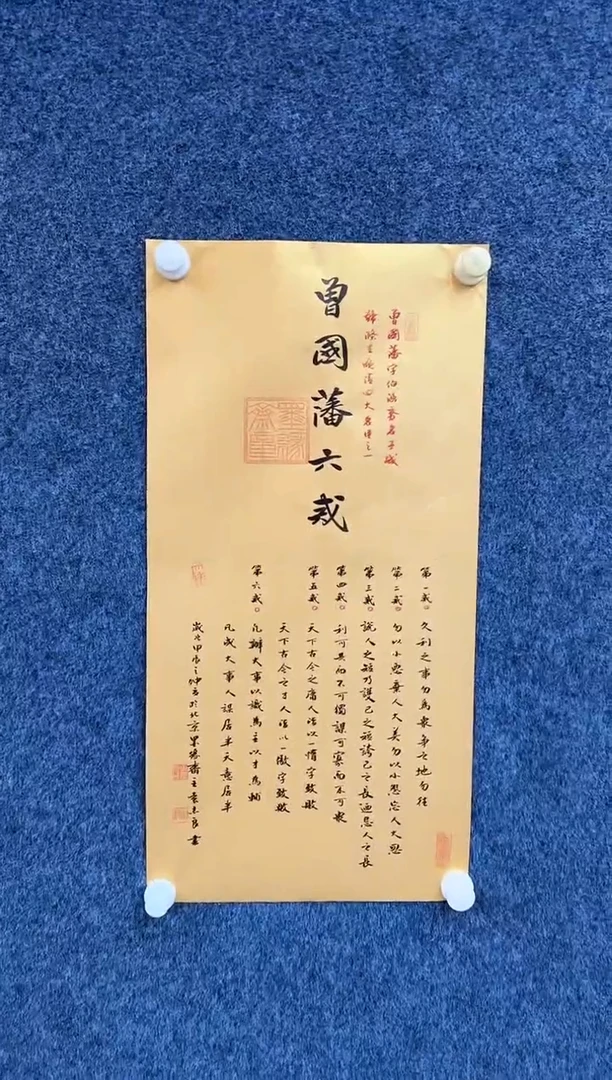 曾國藩六戒
曾國藩字伯涵號名子城
晚清四大名臣之一
第一戒。久利之事勿為衆爭之地勿往
第二戒。勿以小惡棄人大美勿以小怨忘人大恩
第三戒。說人之短乃護己之短誇己之長乃忌人之長
第四戒。利可共而不可獨謀可寡而不可衆
第五戒。天下古今之庸人皆以一惰字致敗
天下古今之才人皆以一傲字致敗
第六戒。凡辦大事以識為主以才為輔
凡成大事人謀居半天意居半
歲次甲 之仲 於北京墨緣齋主 書
墨緣齋